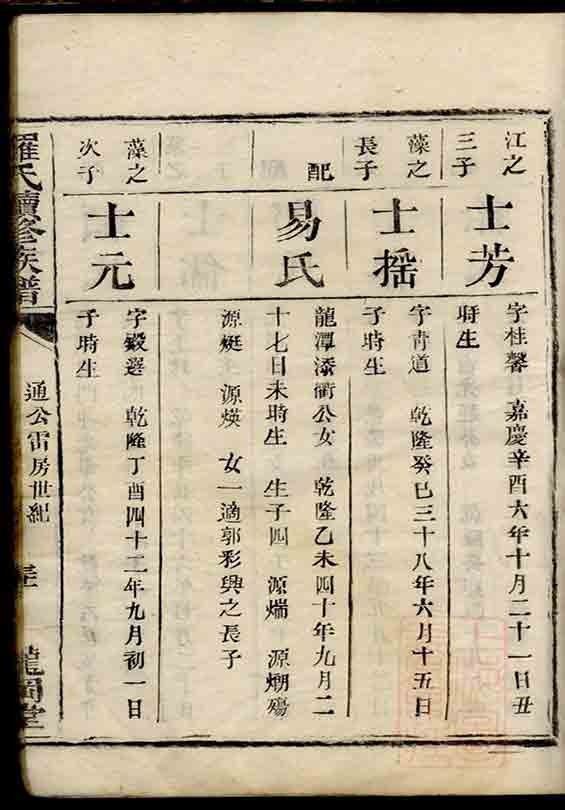 江之
三子
士芳
字桂馨 嘉慶辛酉六年十月二十一日丑
時生
藻之
長子
士搖
字青道 乾隆癸巳三十八年六月十五日
子時生
配
易氏
龍潭添衢公女 乾隆乙未四十年九月二
十七日未時生 生子四 源煓 源爛殤
源烶 源煐 女一適郭彩興之長子
藻之
次子
士元
字毅選 乾隆丁酉四十二年九月初一日
子時生
羅氏續修族譜
通公雷房世紀
龍岡堂